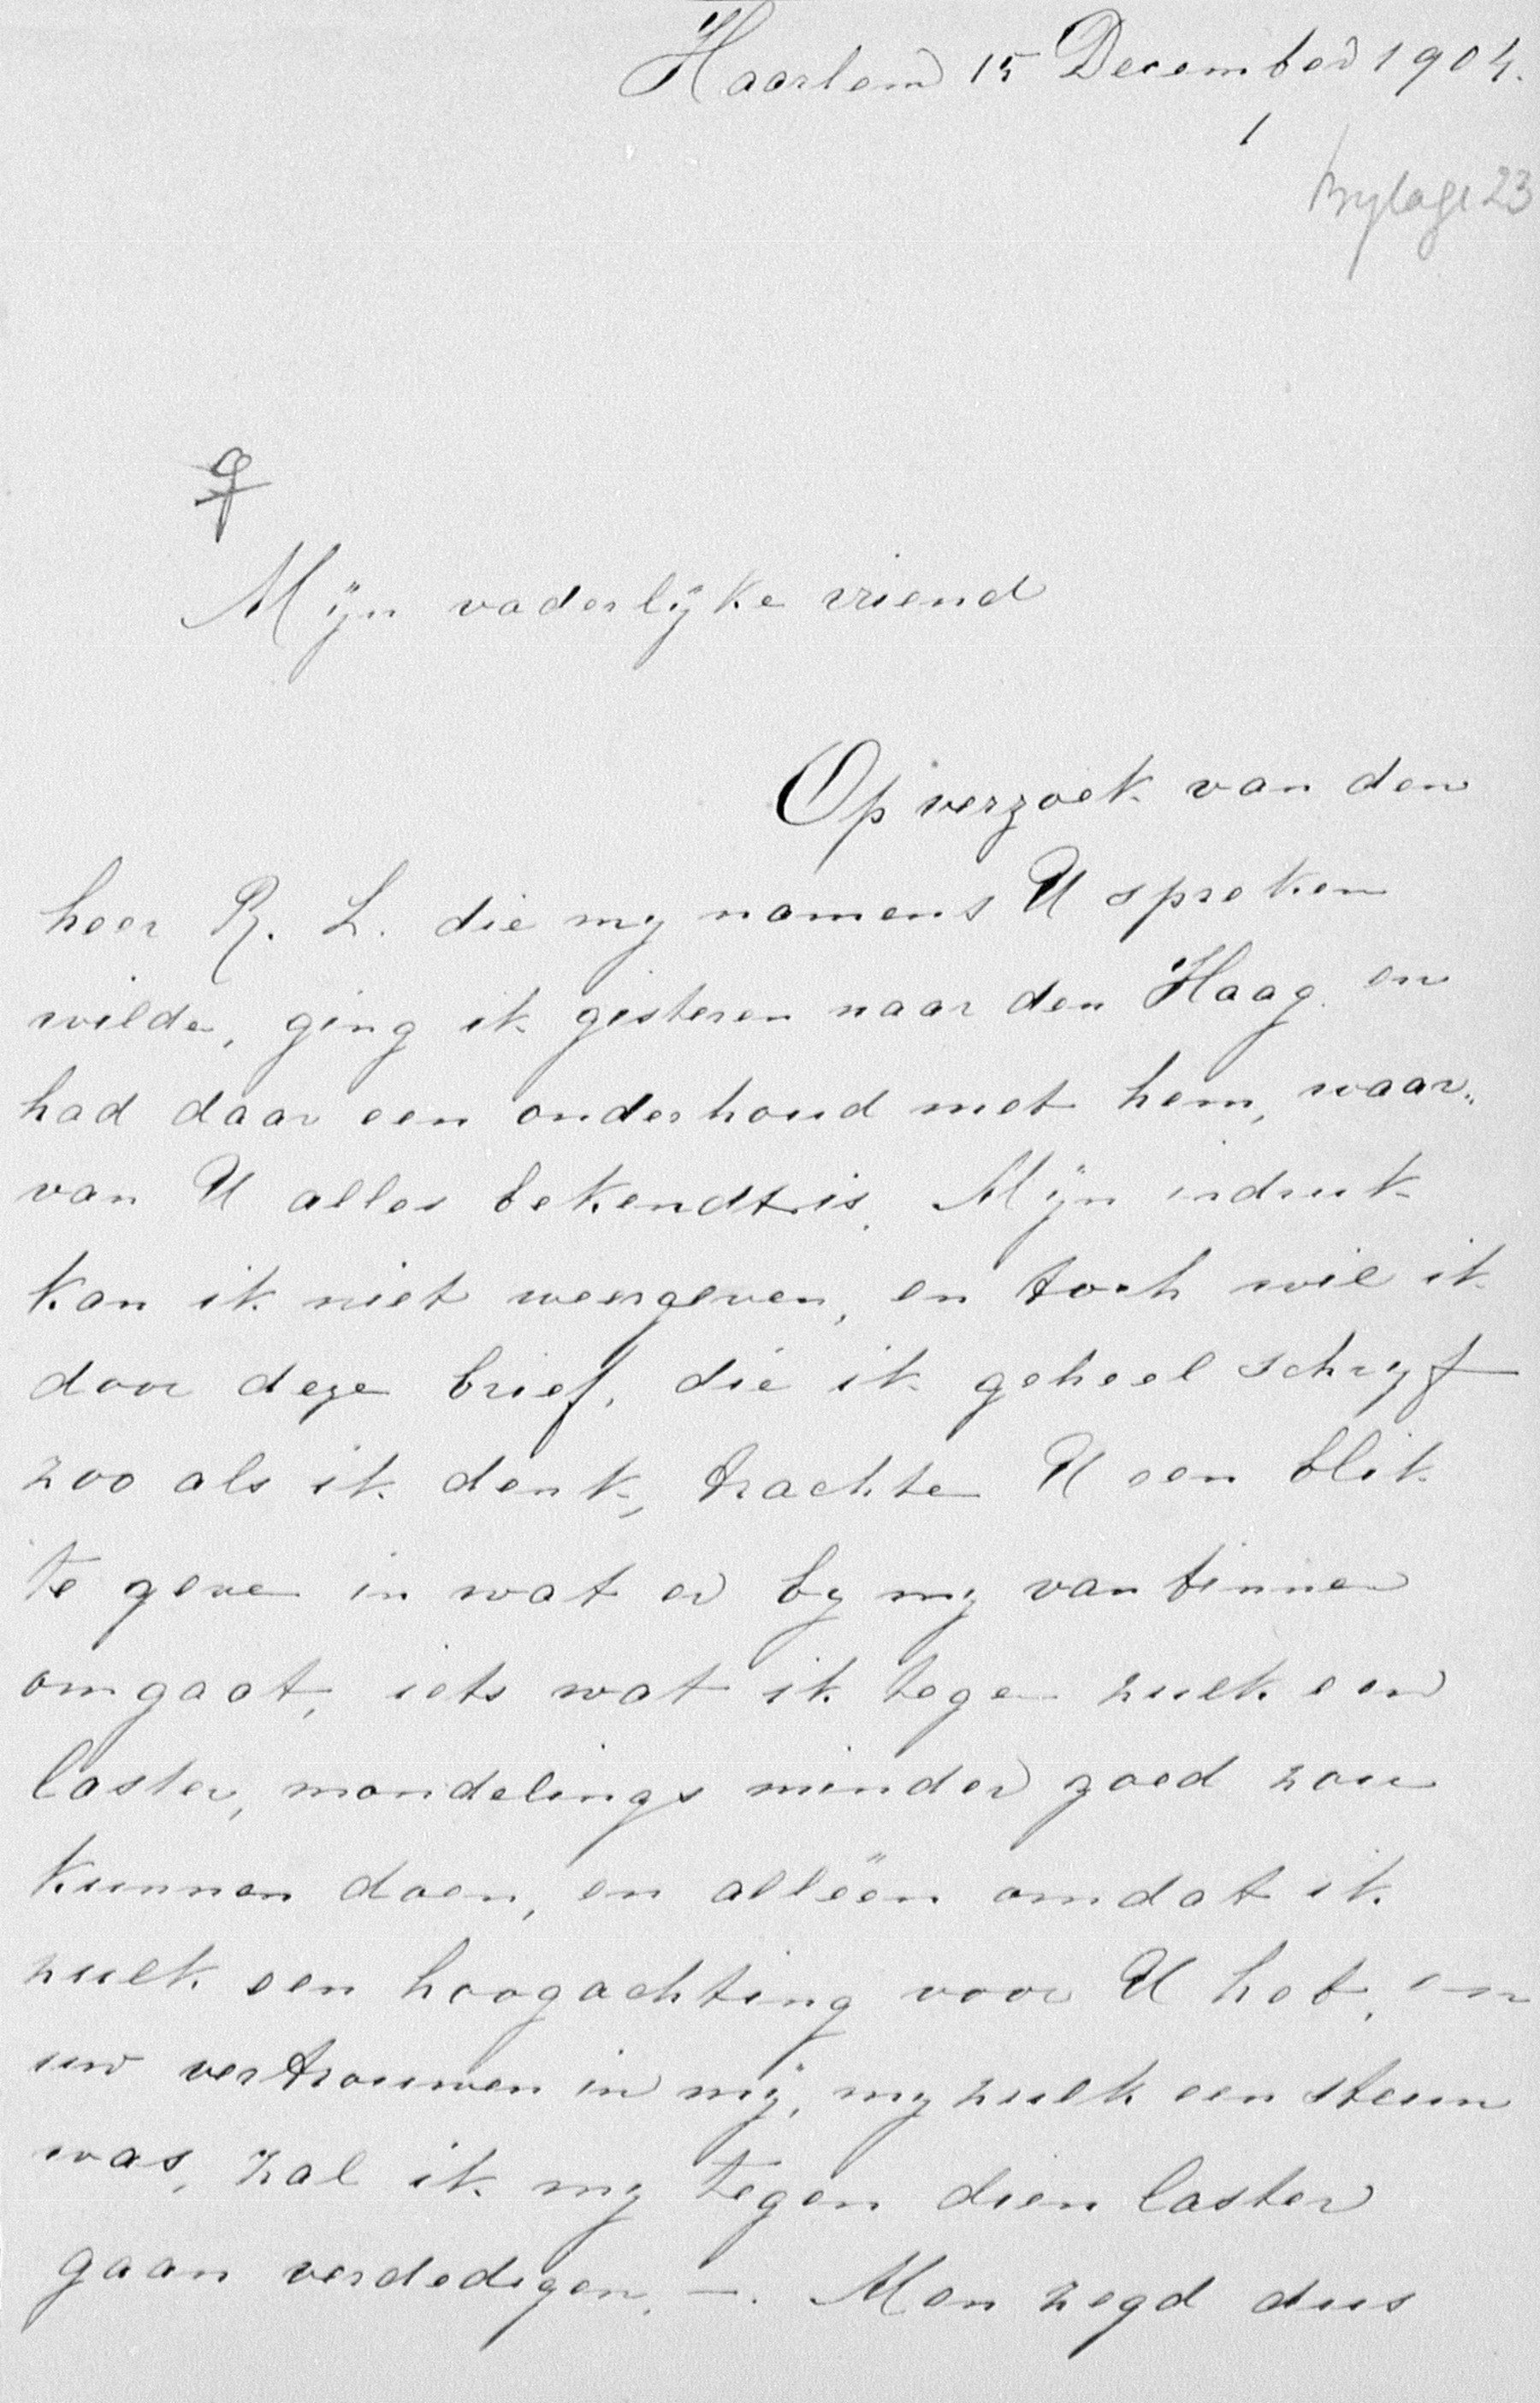 Haarlem 15 December 1904.
1
bylage 23
Mijn vaderlijke vriend
Op verzoek van den
heer R. L. die my namens U spreken
wilde, ging ik gisteren naar den Haag en
had daar een onderhoud met hem, waar„
van U alles bekendt is. Mijn indruk
kan ik niet weergeven, en toch wil ik
door deze brief, die ik geheel schryf
zoo als ik denk, trachte U een blik
te geve in wat er by my van binnen
omgaat, iets wat ik tegen zulk een
laster, mondelings minder goed zou
kunnen doen, en alléén omdat ik
zulk een hoogachting voor U heb, en
uw vertrouwen in mij, my zulk een steun
was, zal ik my tegen dien laster
gaan verdedigen. —. Men zegd dus